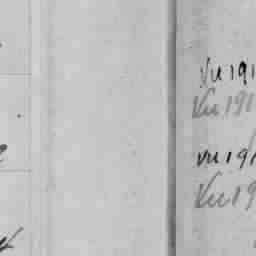 Vu 191
Vu 191
Vu 191
Vu 19